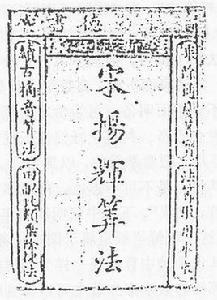 乘除通變算寶
法算取用本末
宋揚輝算法
續古摘奇算法
田畝比類乘除捷法